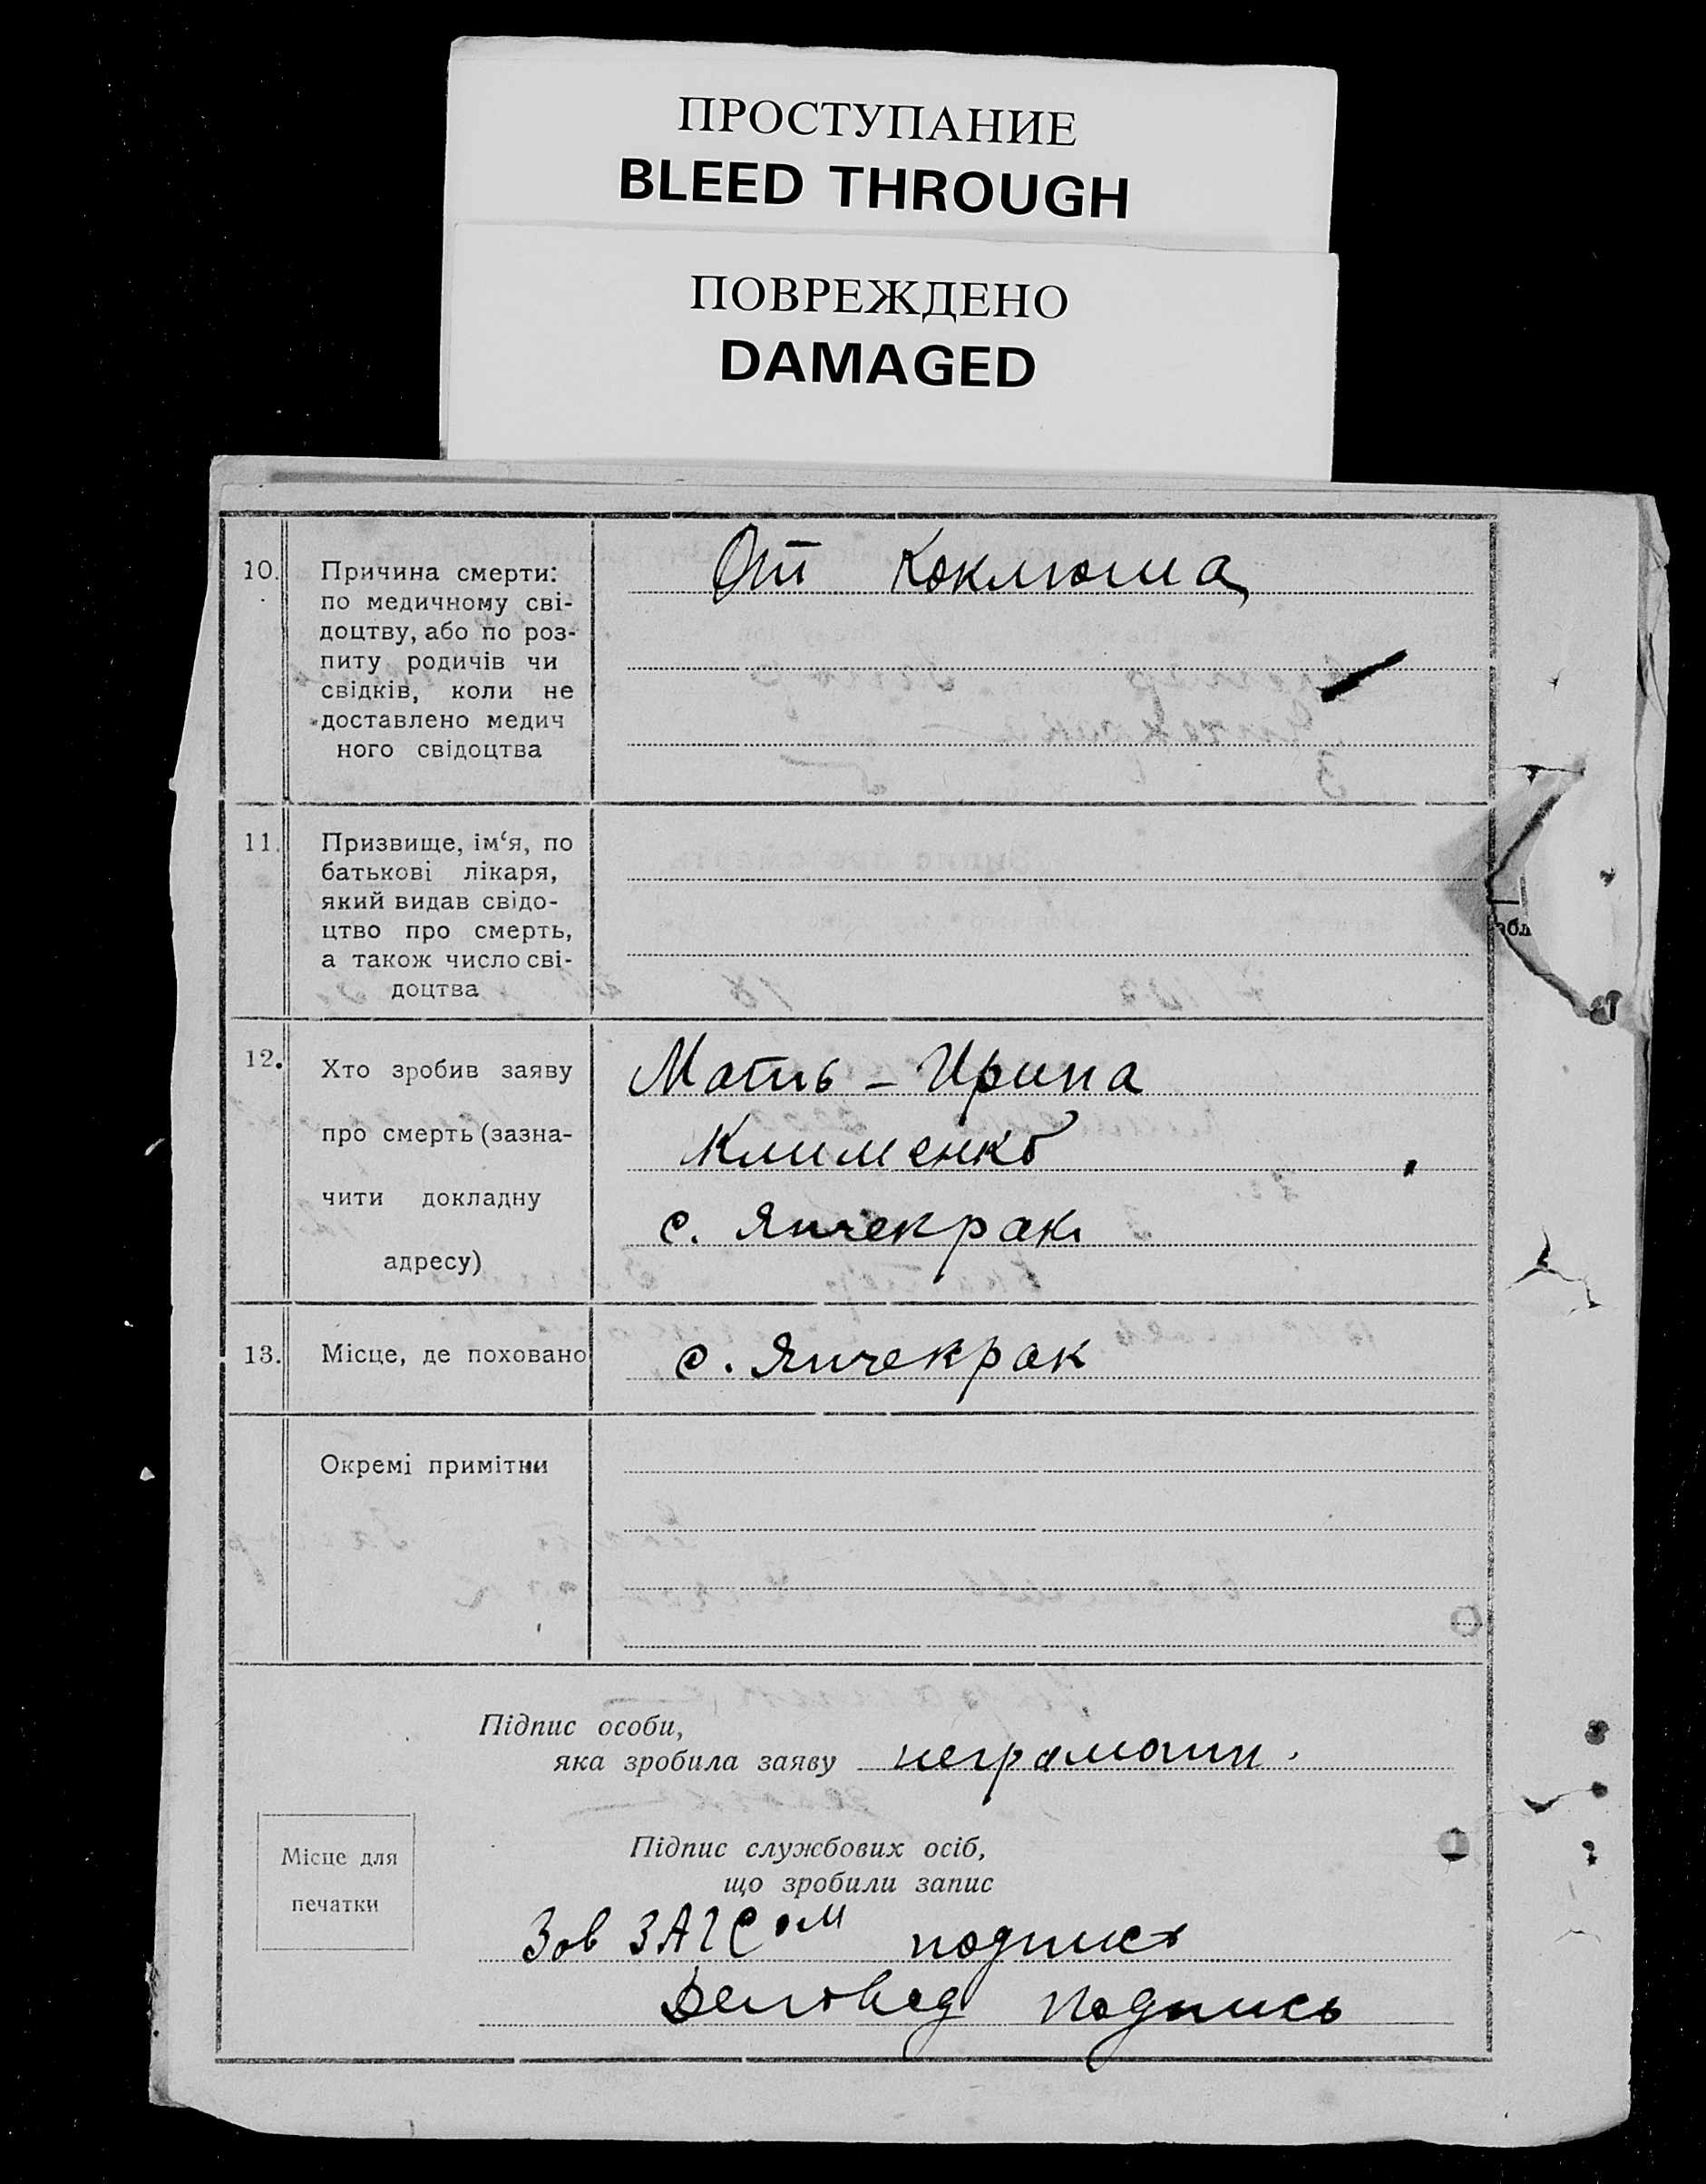 ПРОСТУПАНИЕ
BLEED THROUGH
ПОВРЕЖДЕНО
DAMAGED
10. Причина смерти: От Коклюша
по медичному сві-
доцтву, або по роз-
питу родичів чи
свідків, коли не
доставлено медич
ного свідоцтва
11. Призвище, ім‘я, по
батькові лікаря,
який видав свідо-
цтво про смерть,
а також число сві-
доцтва
12. Хто зробив заяву Мать - Ирина
про смерть (зазна- Клименко
чити докладну с. Янчекрак
адресу)
13. Місце, де поховано с. Янчекрак
Окремі примітки
Підпис особи,
яка зробила заяву неграмотн.
Місце для
печатки
Підпис службових осіб,
що зробили запис
Зав ЗАГСом подпись
Деловод подпись